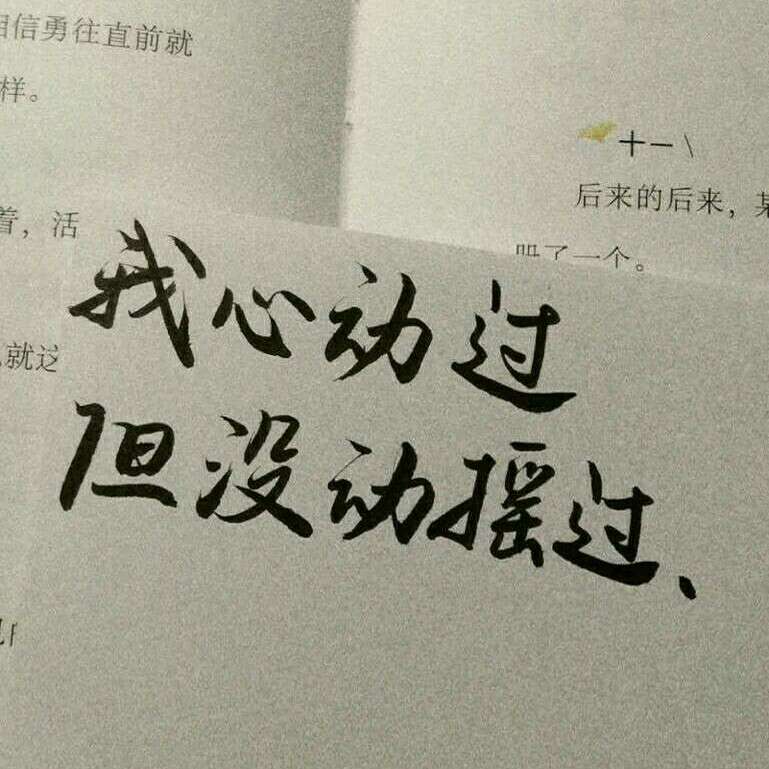 相信勇往直前就
样。
着，活
就这
十一\
后来的后来，某
了一个。
我心动过
但没动摇过、